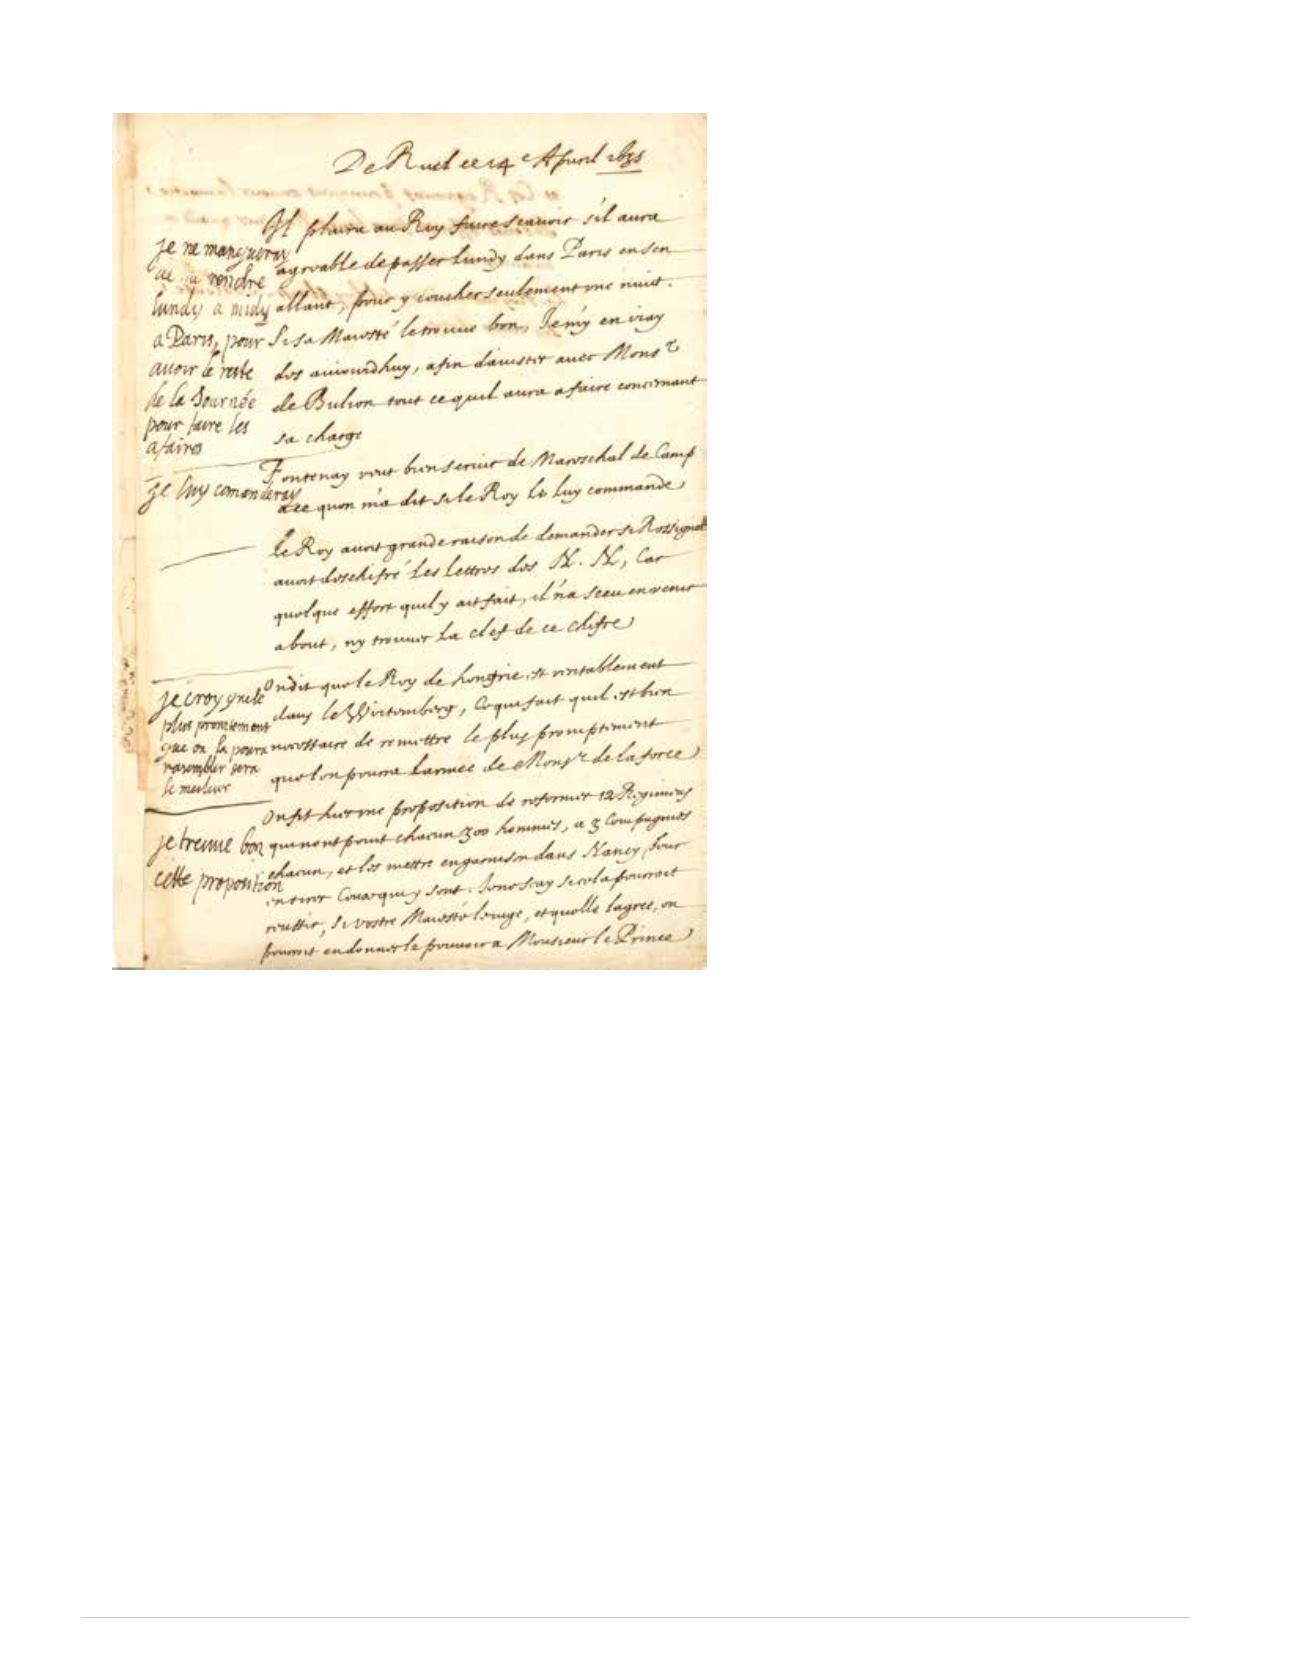 De Ruel ce 14e Apuril 1635
Il plaira au Roy faire scauoir s'il aura
agreable de passer Lundy dans Paris en son
allant, pour y coucher seulement vne nuit.
Si sa Maiesté le trouue bon, Je m'y en iray
des auiourdhuy, afin dauister auec Monsr
de Bulion tout ce quil aura a faire concernant
sa charge
je ne manqueray
de rendre
lundy a midy
a Paris, pour
auoir le reste
de la Journée
pour faire les
afaires
Fontenay veut bien seruir de Mareschal de Camp
a ce quon m'a dit si le Roy le luy commande
je luy comanderay
le Roy auoit grande raison de demander si Rossignol
auoit deschifré les lettres des N. N, Car
quelque effort quil y ait fait, il n'a sceu en venir
about, ny trouuer la clef de ce chifre
On dit que le Roy de hongrie est veritablement
dans le Wirtemberg, Ce qui fait quil est bien
necessaire de remettre le plus promptement
que lon pourra larmee de Monsr de la force
je croy que le
plus prontement
que on la poura
rasembler sera
le meilleur
On fit hier vne proposition de reformer 12 Regimens
qui nont point chacun 300 hommes, a 3 Compagnies
chacun, et les mettre en garnison dans Nancy, pour
en tirer Ceux qui y sont. Je ne scay si cela pourroit
reussir, Si vostre Maiesté le iuge, et quelle lagree, on
pourroit en donner le pouuoir a Monsieur le Prince
je treuue bon
cette proposition